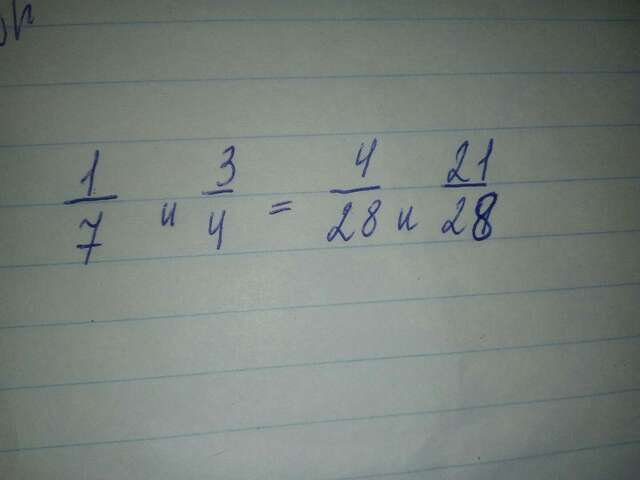 1/7 и 3/4 = 4/28 и 21/28